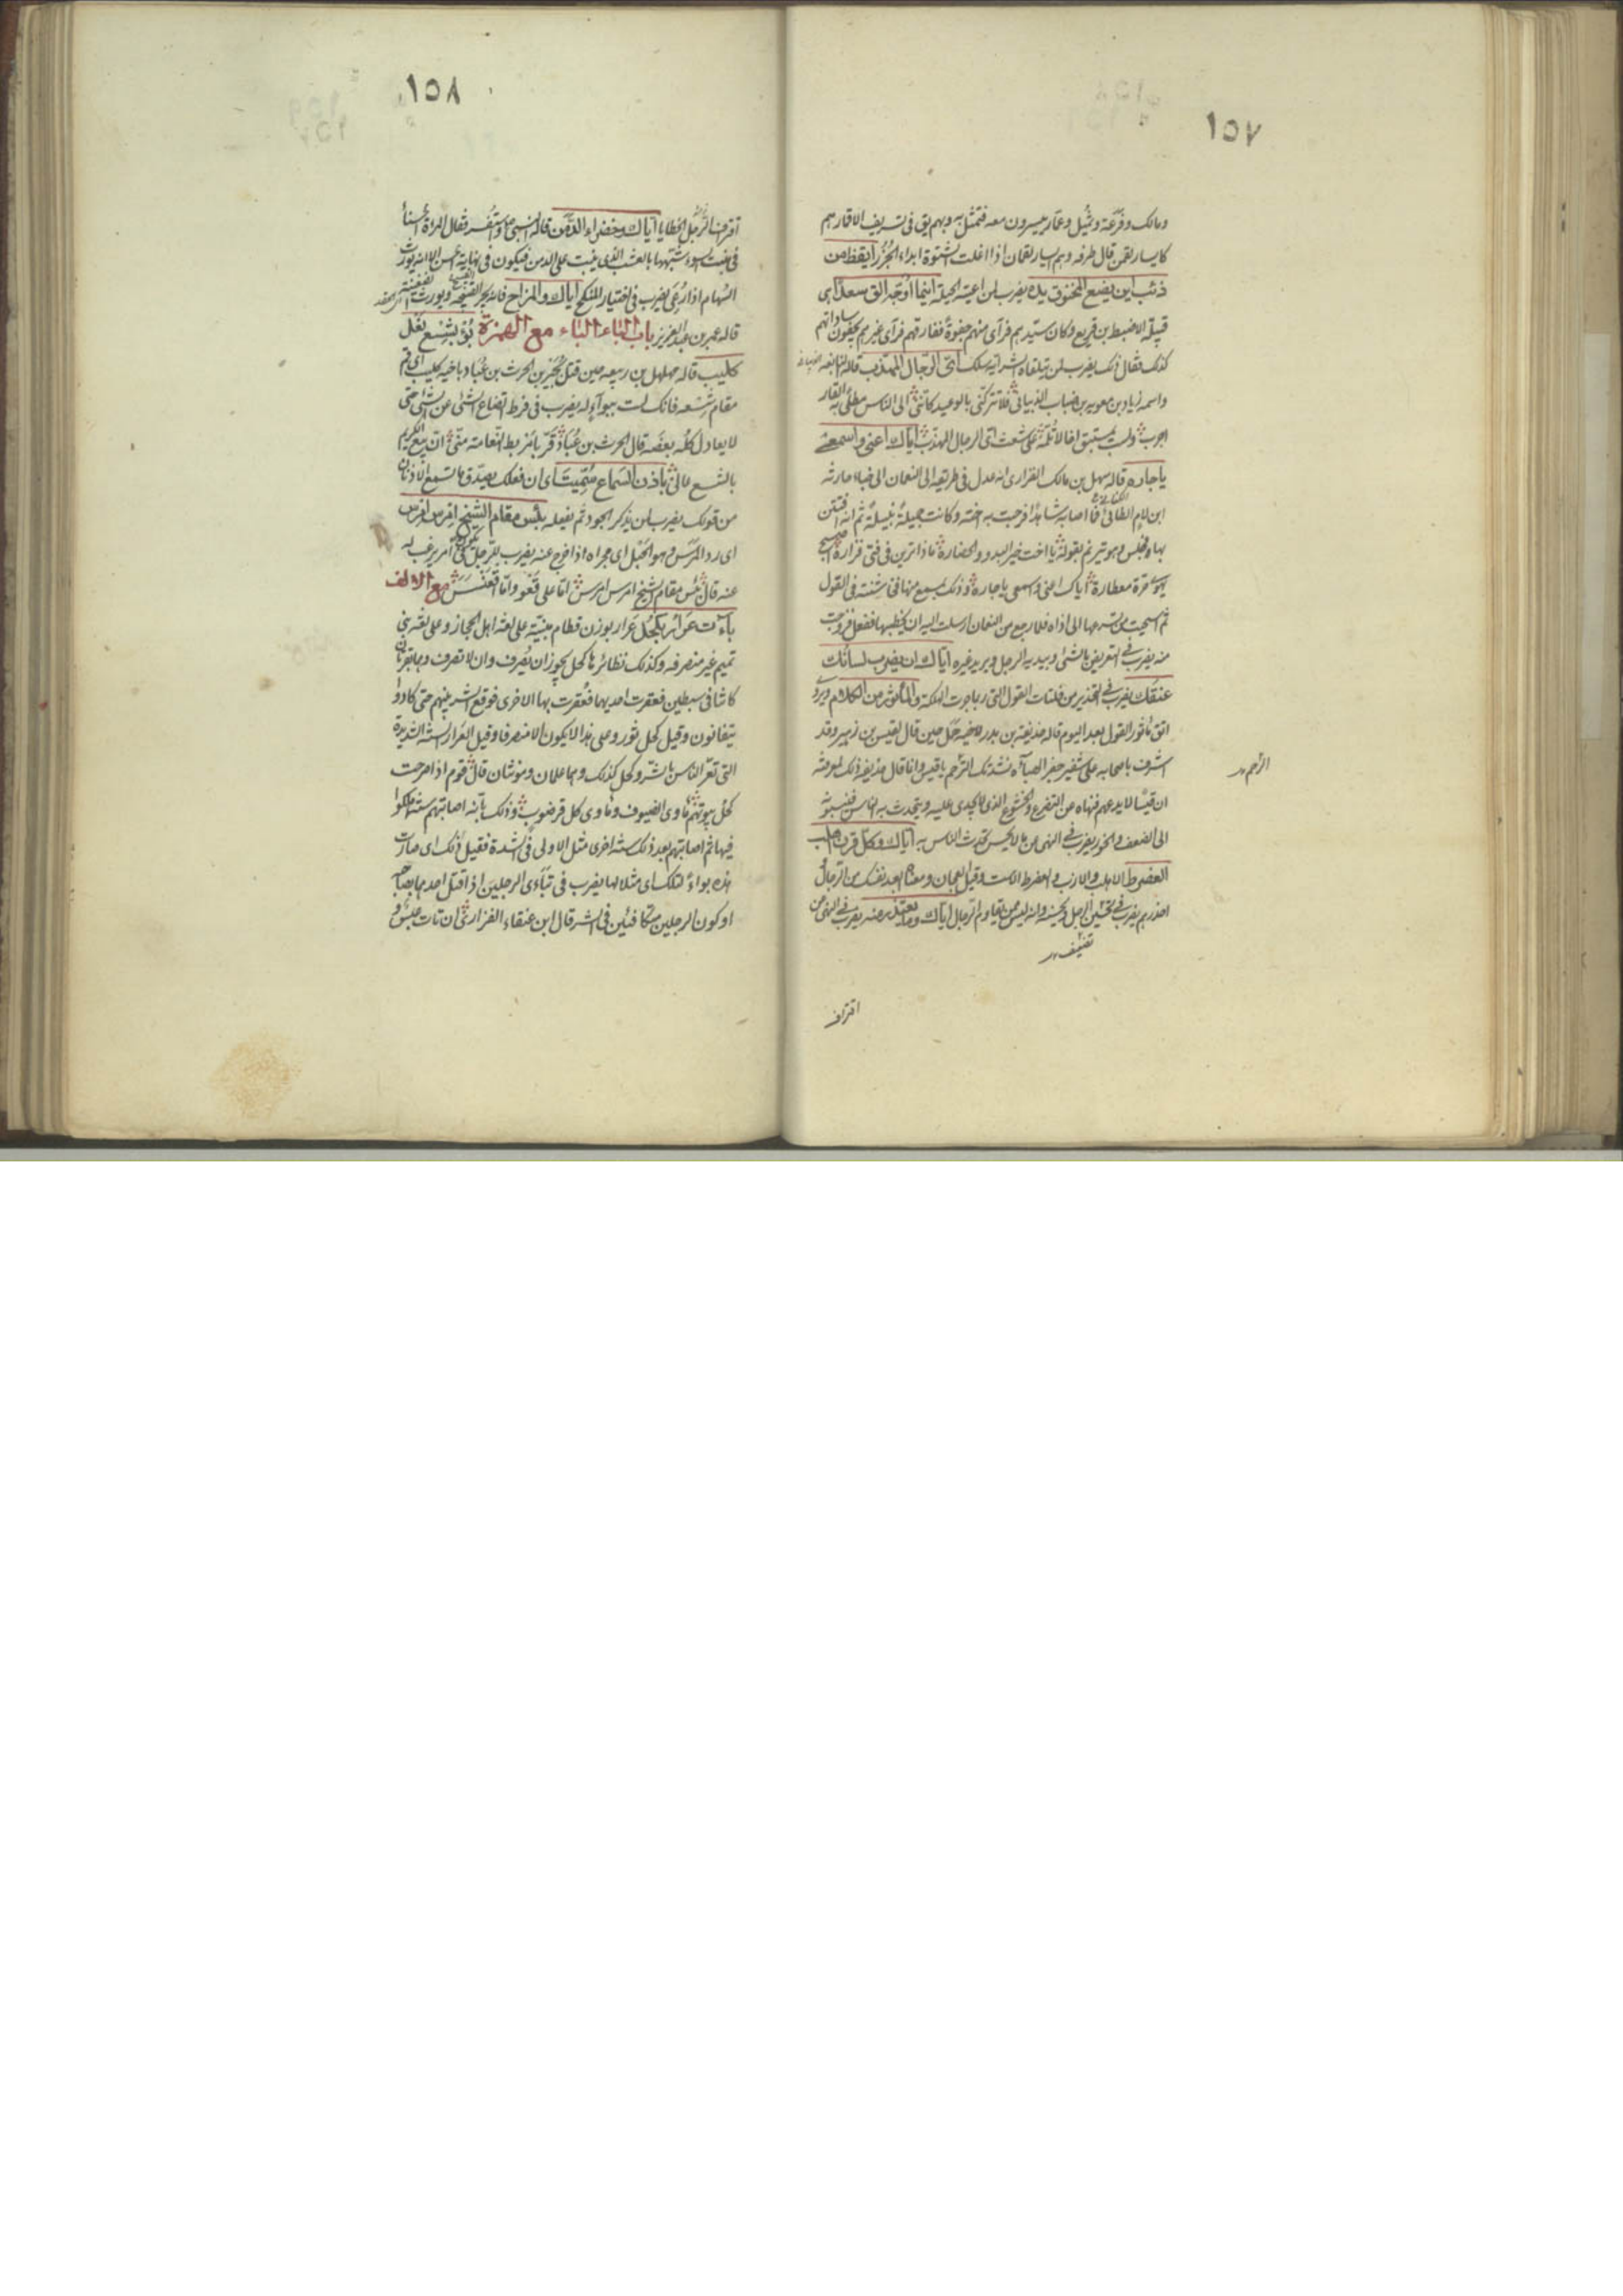 ١٥٧
ومالك وفرعة وثميل وعمار ييسرون معه فتمثل به وبهم يق في تشريف الاقار هم
كايسار لقمن قال طرفه وهم ايسار لقمان اذا اغلت الشتوة ابداء الجزر ايقظ من
ذئب اين يضع المخنوق يده يضرب لمن اعيته الحيلة اينما اوجه الق سعدا اى
قبيلة الاضبط بن قريع وكان سيدهم فرأى منهم جفوة ففارقهم فرأى غيرهم يجفون ساداتهم
كذلك فقال ذلك يضرب لمن يتلقاه الشر اية سلك اى الرجال المهذب قاله النابغه
واسمه زياد بن معويه بن ضباب الذبيانى فلا تتركنى بالوعيد كاننى الى الناس مطلى به القار
اجرب ولست بمستبق اخا لا تلمه على شعث اى الرجال المهذب اياك اعنى واسمعى
يا جاره قاله سهل بن مالك الفزارى انه عدل في طريقه الى النعمان الى خباء حارثه
ابن لام الطائى فما اصابه شاهدا فرحبت به اخته وكانت جميلة نبيلة ثم انه افتتن
بها فجلس وهو يترنم بقوله يا اخت خير البدو والحضارة ماذا ترين في فتى فزارة اصبح
يهوى حرة معطارة اياك اعنى واسمعى يا جاره وذلك بمسمع منها في شتته في القول
ثم استحيت من تسرعها الى اذاه فلما رجع من النعمان ارسلت اليه ان يخطبها ففعل فزوجت
منه يضرب في التعريض بالشئ يبديه الرجل ويريد غيره اياك ان يضرب لسانك
عنقك يضرب في التحذير من فلتات القول التى ربما جرت الهلكة والمأثور من الكلام ويروى
اتق مأثور القول بعد اليوم قاله حذيفة بن بدر لاخيه حمل حين قال لقيس بن زهير وقد
اشرف باصحابه على شفير جفر الهباءه نشدتك الرحم يا قيس وانما قال حذيفه ذلك لمعرفته
الرحم
ان قيسا لا يدعهم فنهاه عن التضرع والخشوع الذى لا يجدى عليه ويتحدث به الناس فينسبوه
الى الضعف والخور يضرب في النهى عن ما لا يحسن تحدث الناس به اياك وكل قرن اهلب
العضرط الاهلب والازب والعضرط الاست وقيل العجان ومعناه ابعد نفسك من الرجال
احذرهم يضرب في تخشين الرجل وانه ليس ممن يقاوم الرجال اياك وما يعتذر منه يضرب في النهى عن
اقتراف
١٥٨
اقتراف الرجل الخطايا اياك وخضراء الدمن قاله النبى واستفسر فقال المراة الحسناء
في منبت السوء شبهها بالعشب الذى ينبت على الدمن فيكون في نهاية الحسن الا انه يورث
السهام اذا رعى يضرب في اختيار المنكح اياك والمزاح فانه يجر القبيحه ويورث الضغينة
قاله عمر بن عبد العزيز باب الباء الباء مع الهمزة بؤ بشسع نعل
كليب قاله مهلهل بن ربيعه حين قتل بجير بن الحرث بن عباد باخيه كليب اى قم
مقام شسعه فانك لست ببوآء له يضرب في فرط اتضاع الشئ عن الشئ حتى
لا يعادل كله بعضه قال الحرث بن عباد قربا مربط النعامة منى ان بيع الكريم
بالشسع غالى باذن السماع سميت اى ان فعلك يصدق ما تسمع الاذنان
من قولك يضرب لمن يذكر الجود ثم يفعله بئس مقام الشيخ امرس امرس
اى رد المرس وهو الحبل اى مجراه اذا خرج عنه يضرب للرجل يكون في امر يرغب له
عنه قال بئس مقام الشيخ امرس امرس اما على قعو واما اقعنسس مع الالف
باءت عرار بكحل عرار بوزن قطام مبنية على لغة اهل الحجاز وعلى لغة بنى
تميم غير منصرفه وكذلك نظائرها كحل يجوز ان يصرف وان لا تصرف وهما بقرتان
كانتا في سبطين فعقرت احديهما فعقرت بها الاخرى فوقع الشر بينهم حتى كادوا
يتفانون وقيل كحل ثور وعلى هذا لا يكون الا منصرفا وقيل العرار السنة الشديدة
التى تعر الناس بالشر وكحل كذلك وهما علمان ومؤنثان قال قوم اذا صرحت
كحل بيوتهم مأوى الضيوف ومأوى كل قرضوب وذلك بانه اصابتهم سنة هلكوا
فيها ثم اصابتهم بعد ذلك سنة اخرى مثل الاولى في الشدة فقيل ذلك اى صارت
هذه بواء لتلك اى مثلا لها يضرب في تباءى الرجلين اذا قتل احدهما بصاحبه
او كون الرجلين متكافئين في الشر قال ابن عنقاء الفزارى ان تات عبس و